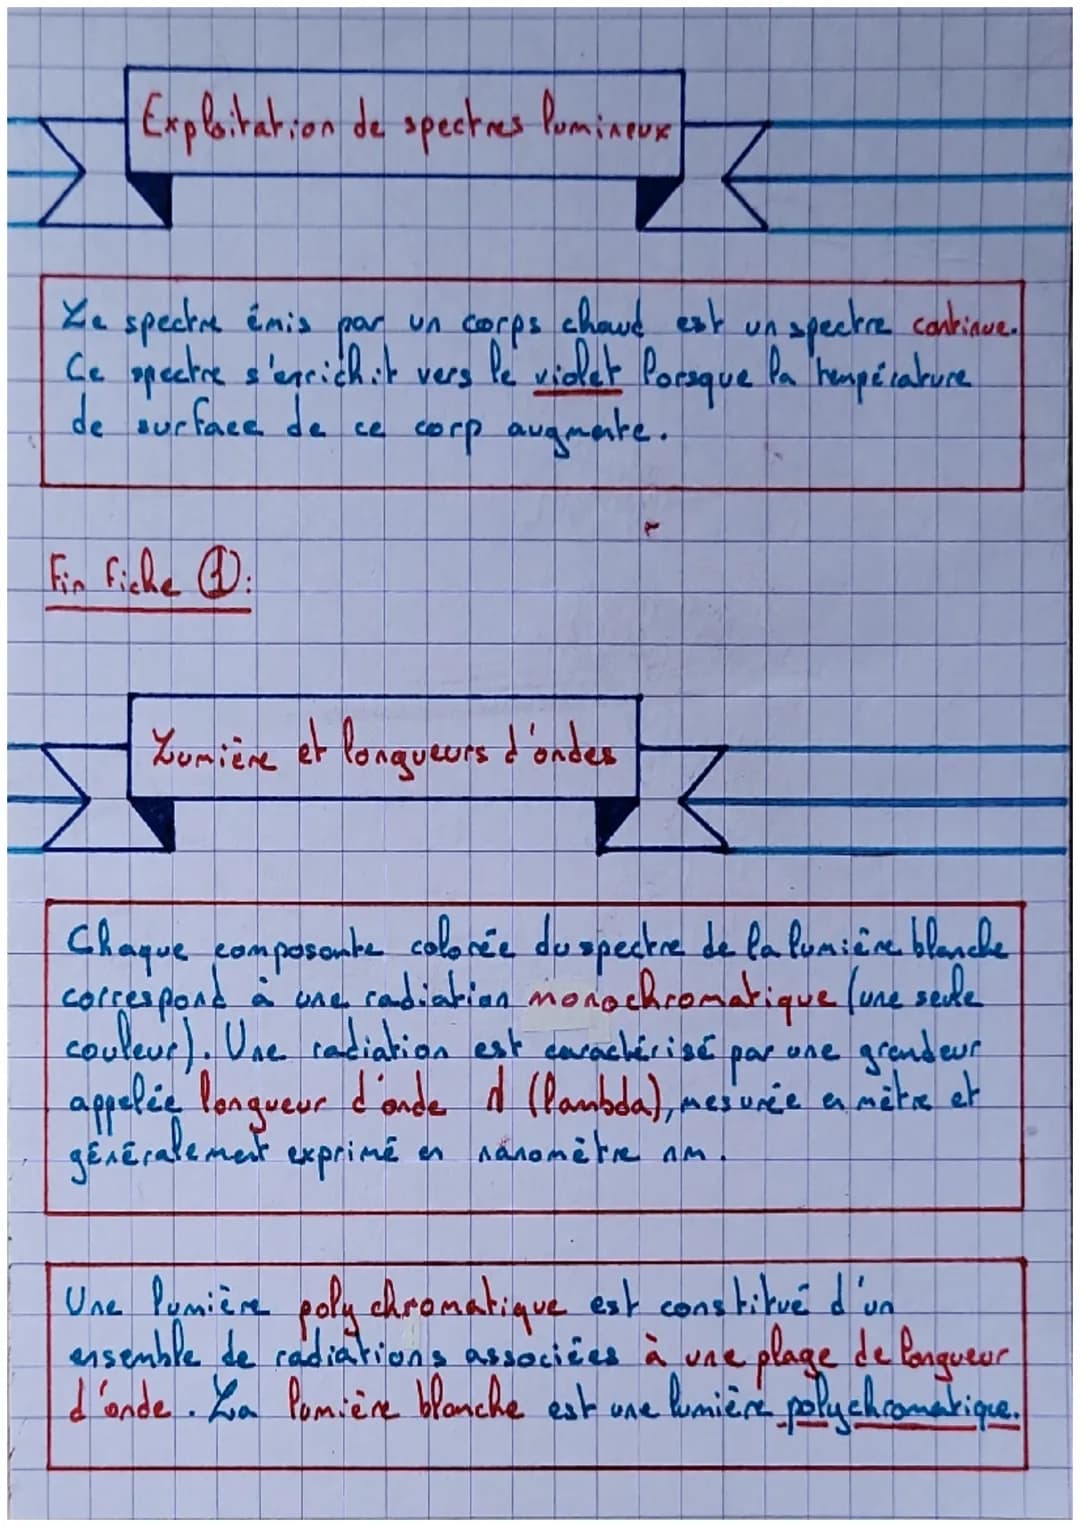 Exploitation de spectres lumineux
Le spectre émis par un corps chaud est un spectre continue.
Ce spectre s'enrichit vers le violet lorsque la température
de surface de ce corp augmente.
Fin fiche ①:
Lumière et longueurs d'ondes
Chaque composante colorée du spectre de la lumière blanche
correspond à une radiation monochromatique (une seule
couleur). Une radiation est caractérisé par une grandeur
appelée longueur d'onde λ (lambda), mesurée en mètre et
généralement exprimé en nanomètre nm.
Une lumière polychromatique est constitué d'un
ensemble de radiations associées à une plage de longueur
d'onde. La lumière blanche est une lumière polychromatique.